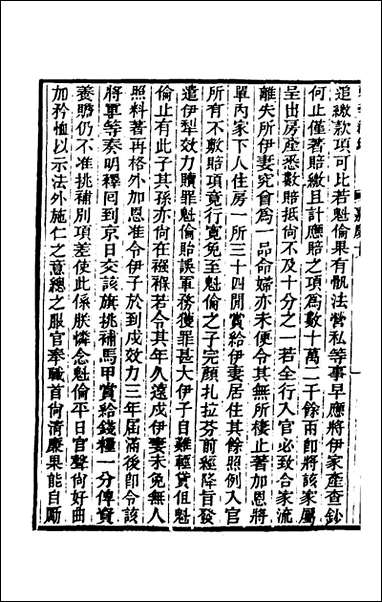 追繳款項可比若魁倫果有骫法營私等事早應將伊家產查鈔
何止僅著賠繳且計應賠之項為數十萬二千餘兩卽將該家屬
呈出房產悉數賠抵尙不及十分之一若全行入官必致合家流
離失所伊妻究會為一品命婦亦未便令其無所棲止著加恩將
單內家下人住房一所三十四間賞給伊妻居住其餘照例入官
所有不敷賠項竟行寬免至魁倫之子完顏扎拉芬前經降旨發
遣伊犁效力贖罪魁倫貽誤軍務獲罪甚大伊子自難輕貸但魁
倫止有此子其孫亦尙在襁褓若令其年久遠戍伊妻未免無人
照料著再格外加恩准令伊子於到戍效力三年屆滿後卽令該
將軍等奏明釋回到京日交該旗挑補馬甲賞給錢糧一分俾資
養贍仍不准挑補別項差使此係朕憐念魁倫平日官聲尙好曲
加矜恤以示法外施仁之意總之服官奉職首尙清廉果能自勵